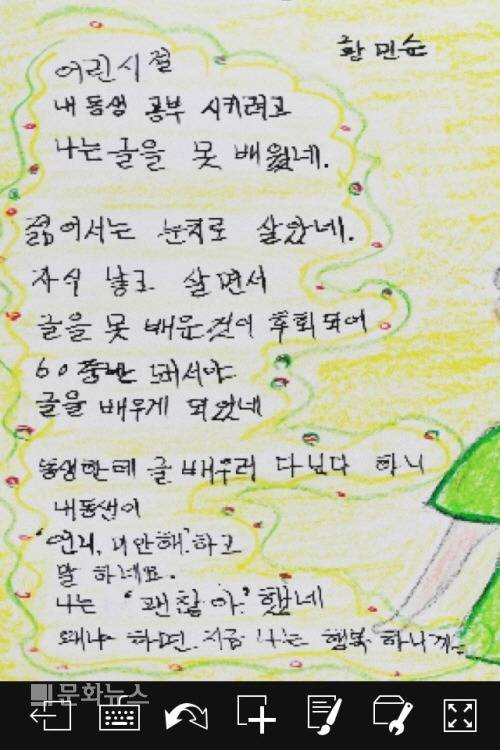 황민순
어린시절
내동생 공부 시키려고
나는 글을 못 배웠네.
젊어서는 눈치로 살았네.
자식 낳고 살면서
글을 못 배운것이 후회되어
60중반 되서야
글을 배우게 되었네
동생한테 글 배우러 다닌다 하니
내동생이
'언니, 미안해' 하고
말 하네요.
나는 '괜찮아' 했네
왜냐 하면 지금 나는 행복 하니까.
문화뉴스